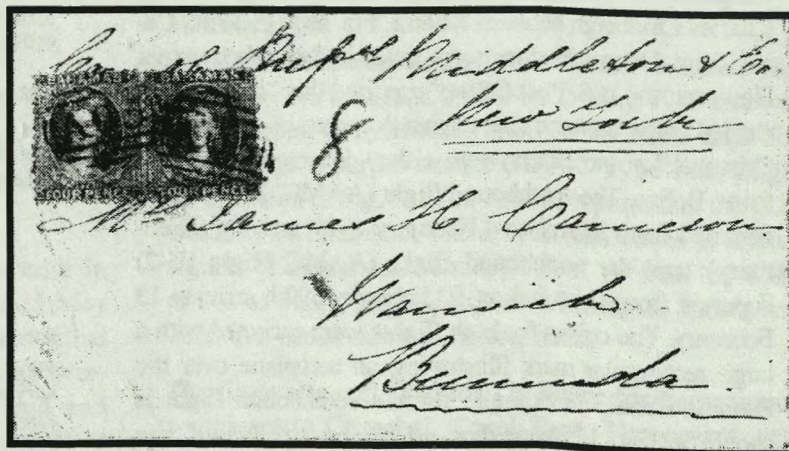 Care of Messrs Middleton & Co
New York
FOUR PENCE FOUR PENCE
8
Mr James H Cameron
Warwick
Bermuda